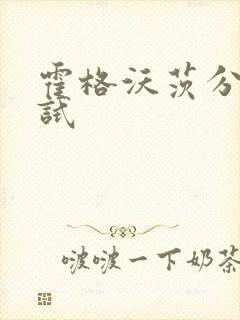 霍格沃茨分
试
啵啵一下奶茶